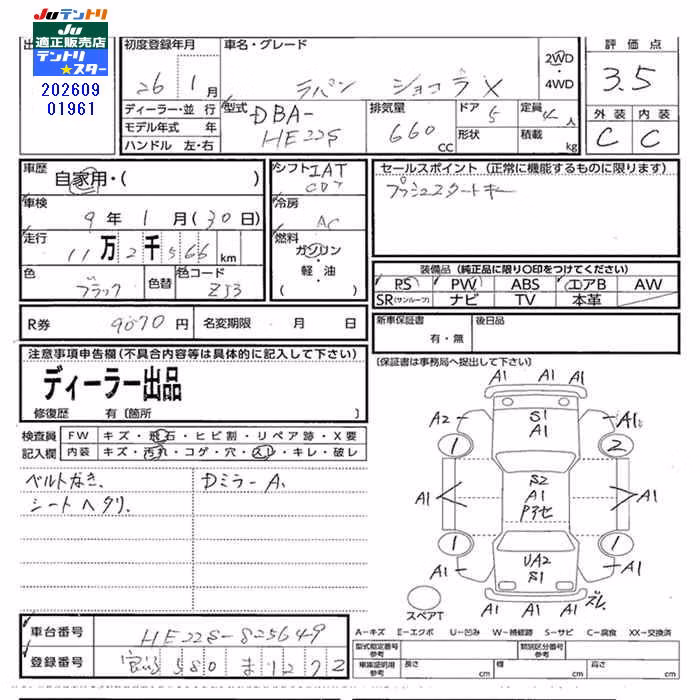 JUテントリ
JU
適正販売店
テントリ
★スター
202609
01961
初度登録年月
26 1月
車名・グレード
ラパン ショコラX
2WD
・
4WD
評価点
3.5
ディーラー・並行
モデル年式 年
ハンドル 左・右
型式
DBA-
HE22S
排気量
660
CC
ドア
5
形状
定員
4人
積載
kg
外装 内装
C C
車歴
自家用・( )
車検
9年 1月(30日)
走行
11万2千566km
色
ブラック
色替
色コード
ZJ3
シフト IAT
冷房
AC
燃料
ガソリン
・
軽・油
( )
セールスポイント (正常に機能するものに限ります)
プッシュスタートキー
装備品(純正品に限り○印をつけてください)
PS PW ABS エアB AW
SR(サンルーフ) ナビ TV 本革
R券 9070円 名変期限 ・ 月 日
新車保証書
有・無
後日品
(保証書は事務局へ提出して下さい)
注意事項申告欄(不具合内容等は具体的に記入して下さい)
ディーラー出品
修復歴 有〔箇所 〕
検査員
記入欄
FW キズ・飛石・ヒビ割・リペア跡・X要
内装 キズ・汚れ・コゲ・穴・スレ・キレ・破レ
ベルトなき、 Dミラー A.
シートヘタリ.
A1 A1
A2 S1 A1
A1
1 2
A1 S2 A1
A1
1 1
A1 UA2 A1
S1
A1 A1 ズレ
スペアT
A-キズ E-エクボ U-凹み W-補修跡 S-サビ C-腐食 XX-交換済
車台番号 HE22S-825649
登録番号 580 ま 1272
型式指定番号
参考
類別区分番号
参考
車庫証明用
参考
長さ cm
幅 cm
高さ cm